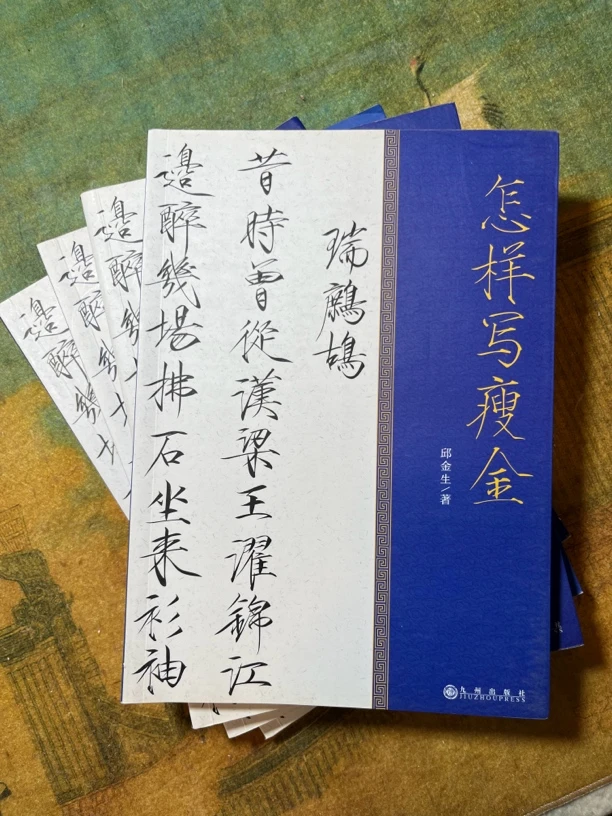 怎样写瘦金
邱金生/著
瑞鷓鴣
昔時曾從漢梁王濯錦江
邊醉幾場拂石坐来衫袖
九州出版社
JIUZHOUPRESS
邊醉幾
邊醉幾
邊醉幾